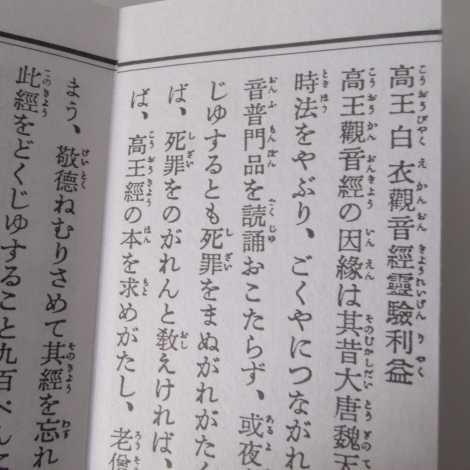 高王白衣觀音經靈驗利益
高王觀音經の因縁は其昔大唐魏天
時法をやぶり、ごくやにつながれ
音普門品を読誦おこたらず、或夜
じゆするとも死罪をまぬがれがた
ば、死罪をのがれんと敎えければ、
ば、高王經の本を求めがたし、老僧
まう、敬德ねむりさめて其經を忘れ
此經をどくじゆすること九百べんて